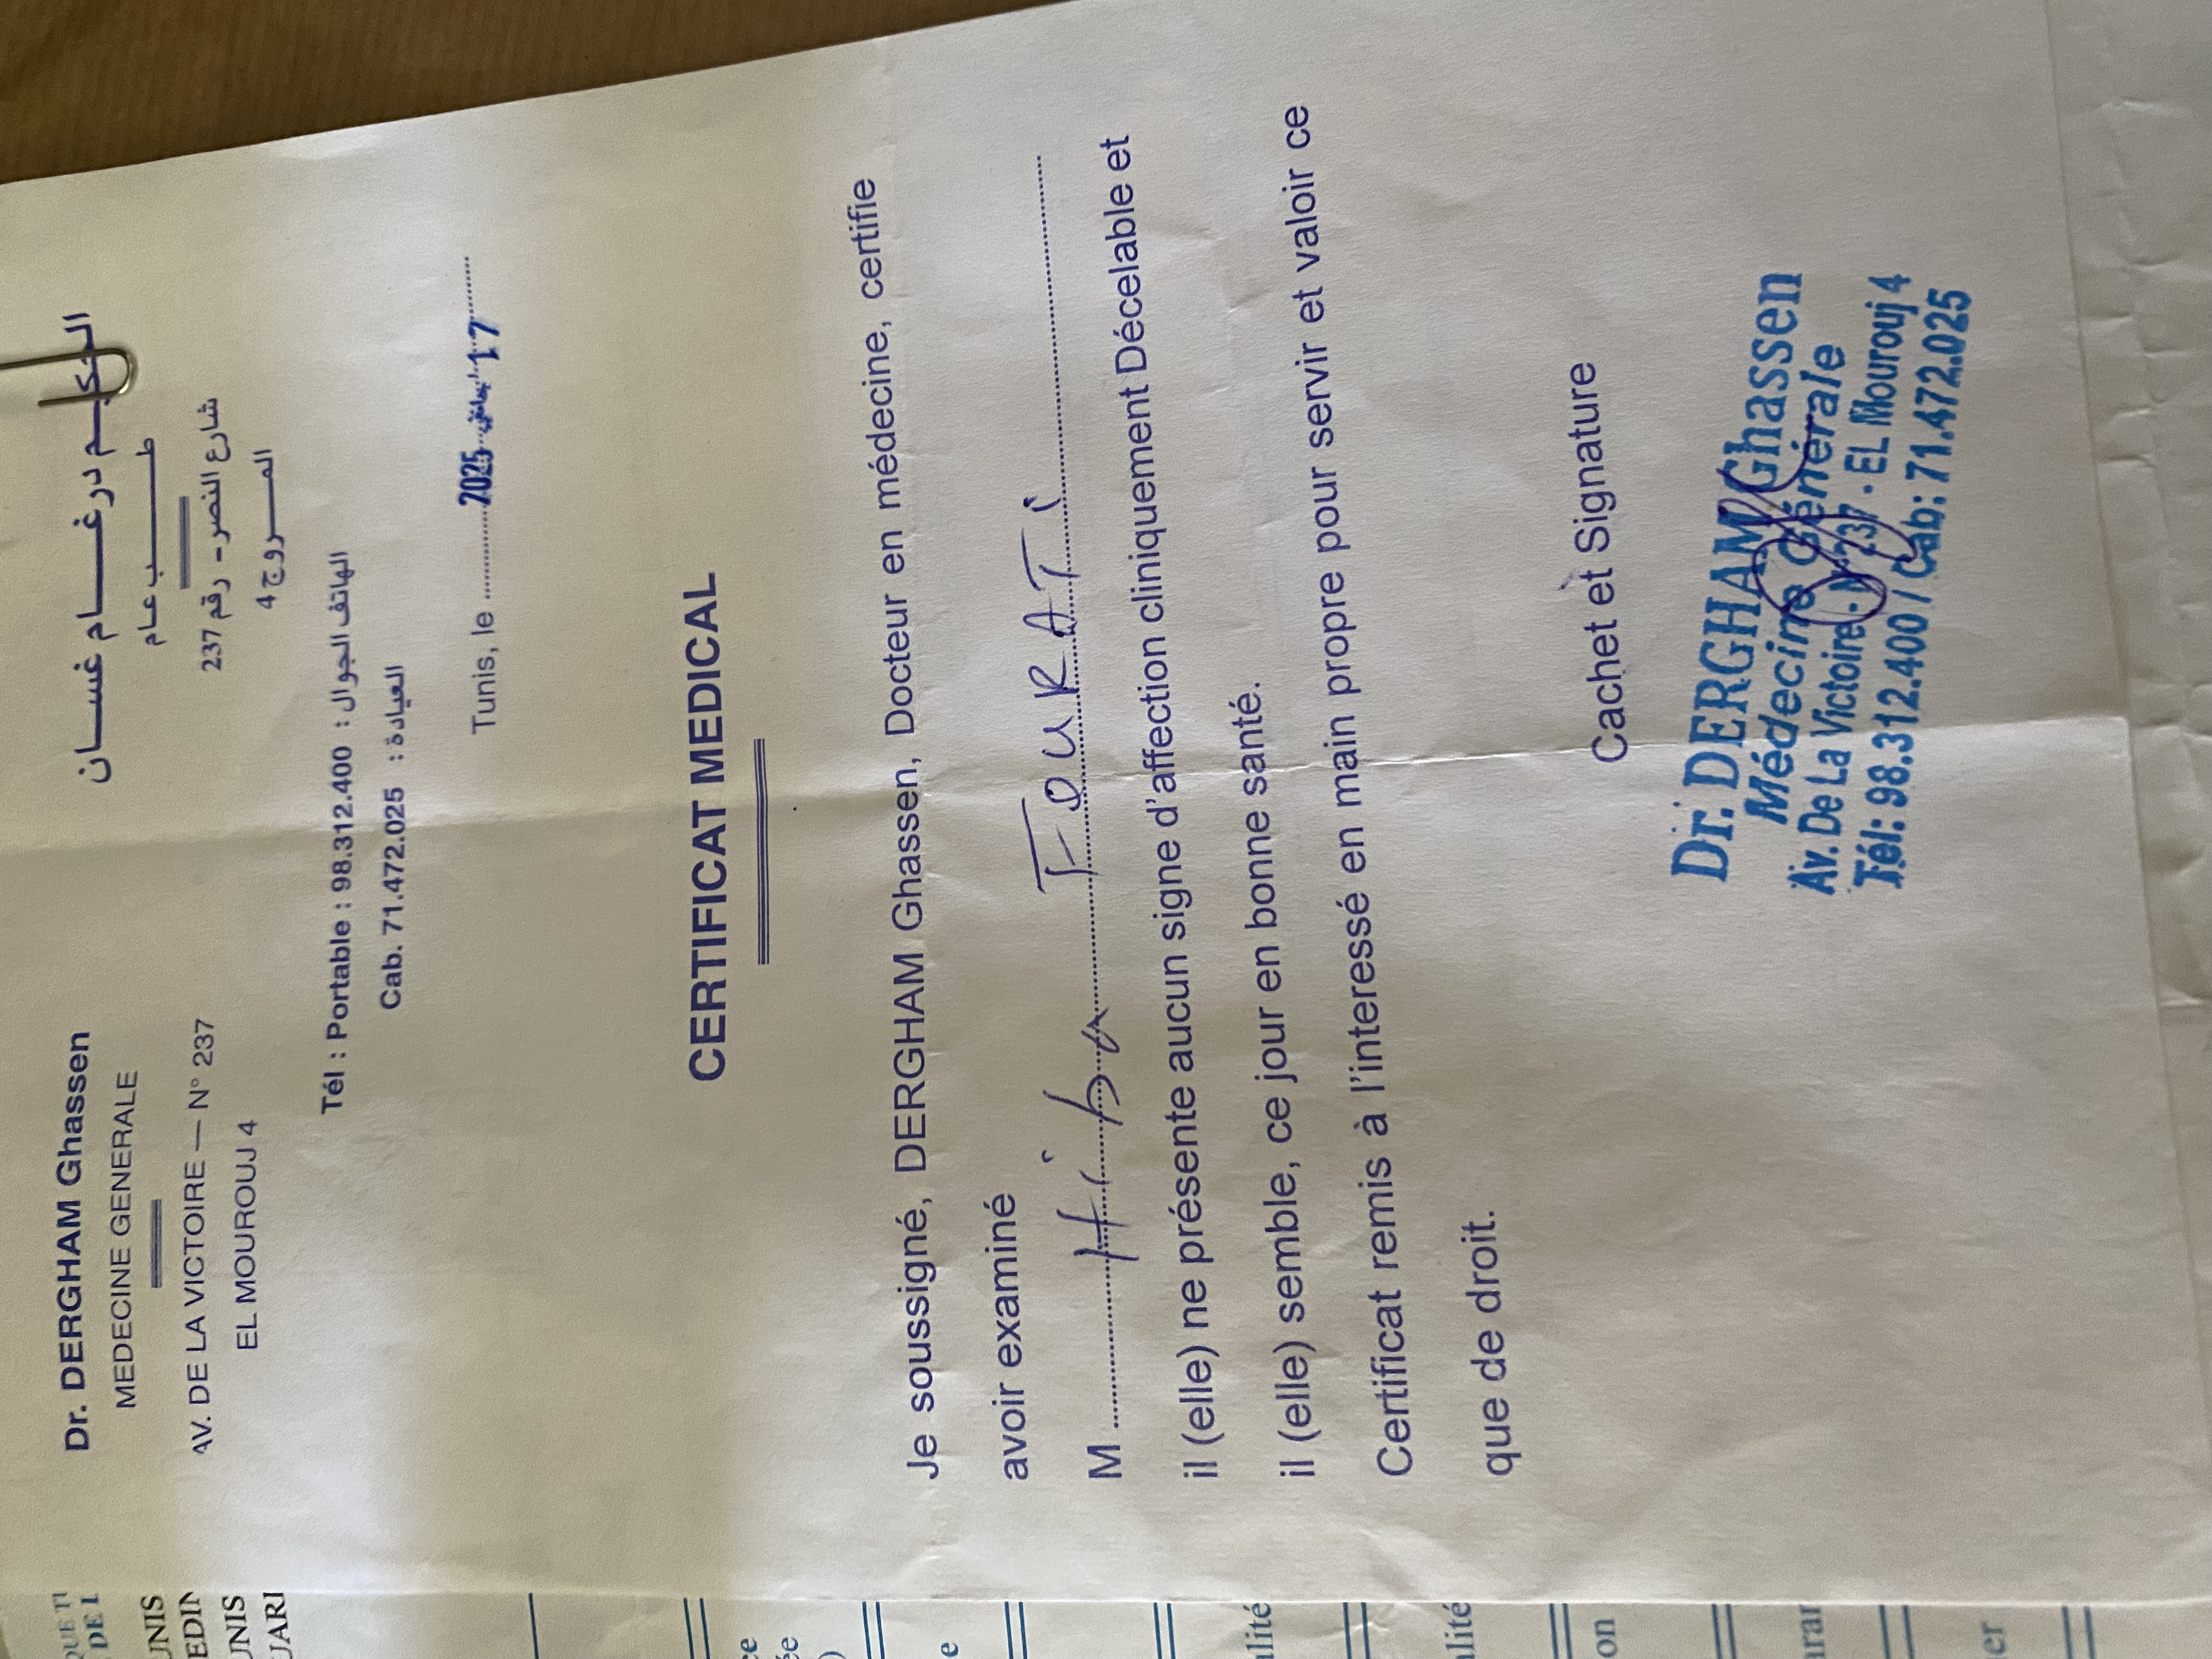 Dr. DERGHAM Ghassen
MEDECINE GENERALE
AV. DE LA VICTOIRE — N° 237
EL MOUROUJ 4
الحكيم درغام غسان
طب عام
شارع النصر - رقم 237
المروج 4
Tél : Portable : 98.312.400 : الهاتف الجوال
Cab. 71.472.025 : العيادة
Tunis, le 2025 17
CERTIFICAT MEDICAL
Je soussigné, DERGHAM Ghassen, Docteur en médecine, certifie
avoir examiné
M Hiba FOURATi
il (elle) ne présente aucun signe d'affection cliniquement Décelable et
il (elle) semble, ce jour en bonne santé.
Certificat remis à l'interessé en main propre pour servir et valoir ce
que de droit.
Cachet et Signature
Dr. DERGHAM Ghassen
Médecine Générale
Av. De La Victoire - N° 237 - EL Mourouj 4
Tél: 98.312.400 / Cab: 71.472.025
DE
UNIS
UNIS
alité